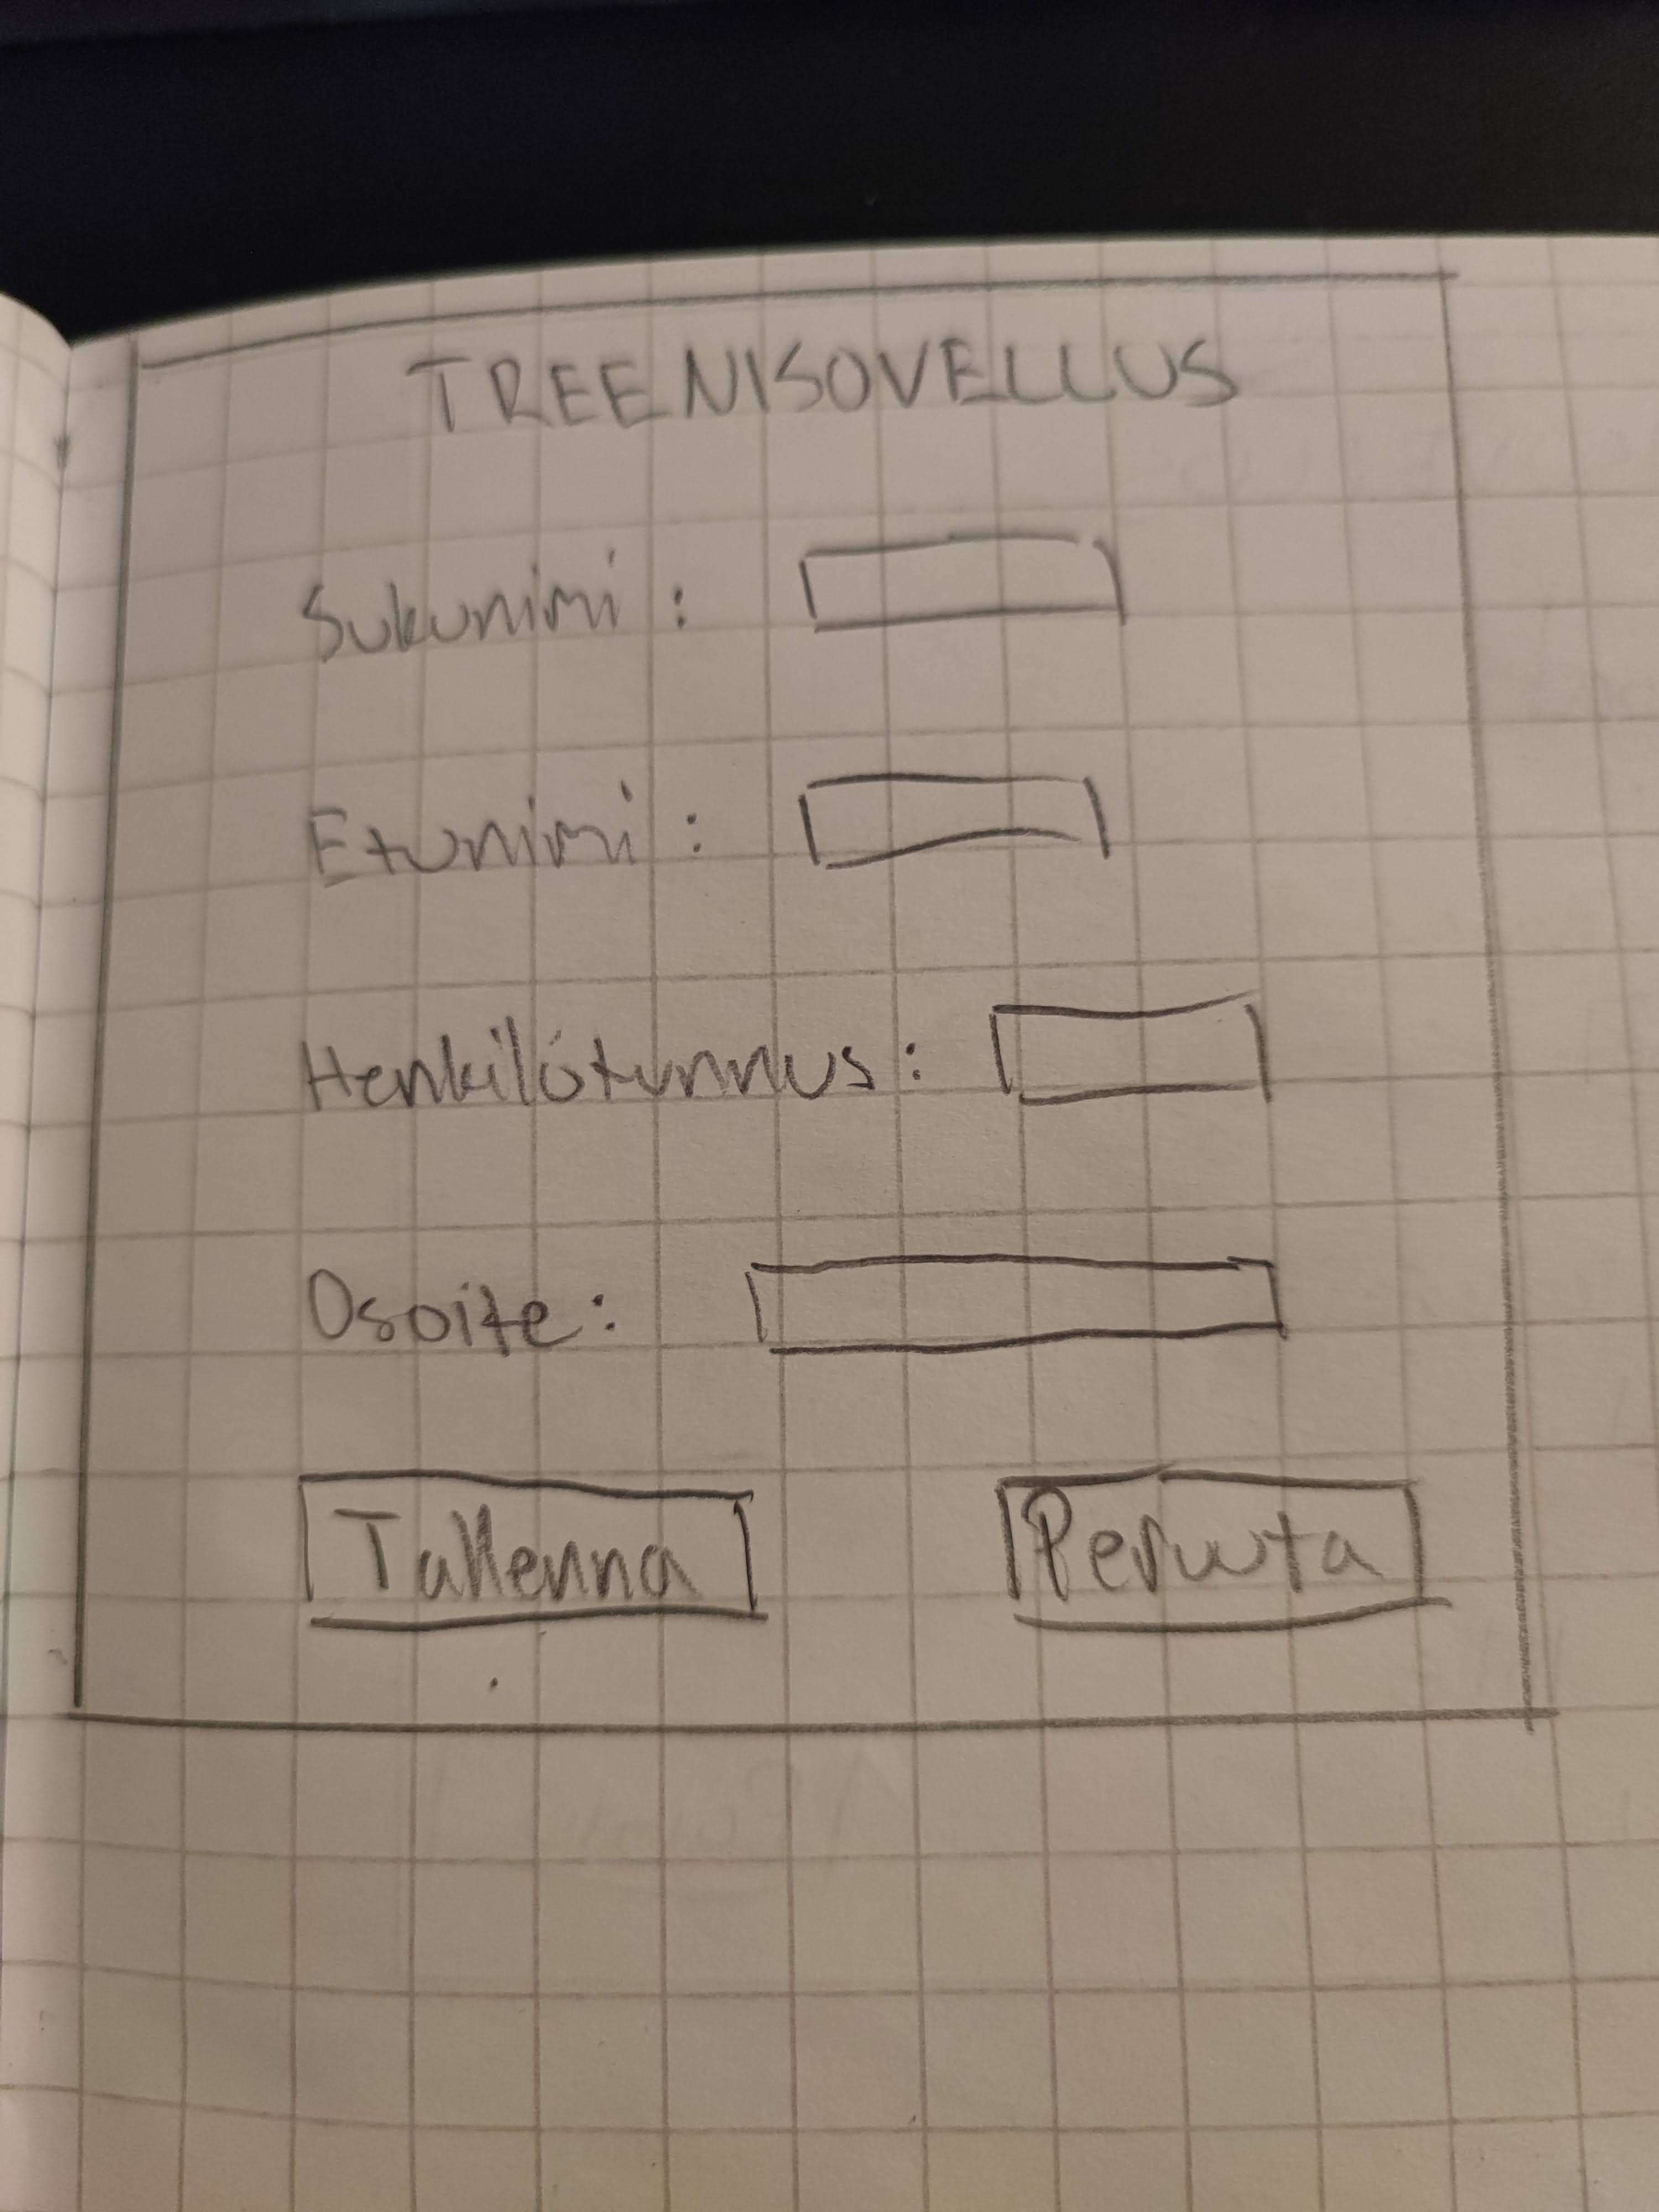 TREENISOVELLUS
Sukunimi :
Etunimi :
Henkilötunnus :
Osoite :
Tallenna Peruuta